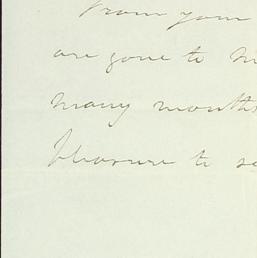 From your
are gone to
many months
pleasure to